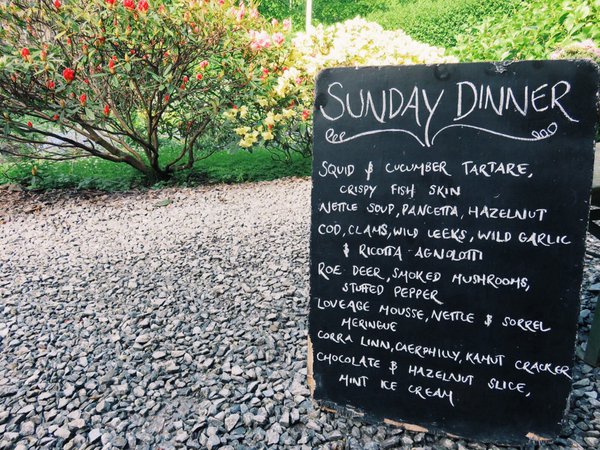 SUNDAY DINNER
SQUID & CUCUMBER TARTARE,
CRISPY FISH SKIN
NETTLE SOUP, PANCETTA, HAZELNUT
COD, CLAMS, WILD LEEKS, WILD GARLIC
& RICOTTA AGNOLOTTI
ROE DEER, SMOKED MUSHROOMS,
STUFFED PEPPER
LOVEAGE MOUSSE, NETTLE & SORREL
MERINGUE
CORRA LINN, CAERPHILLY, KAMUT CRACKER
CHOCOLATE & HAZELNUT SLICE,
MINT ICE CREAM